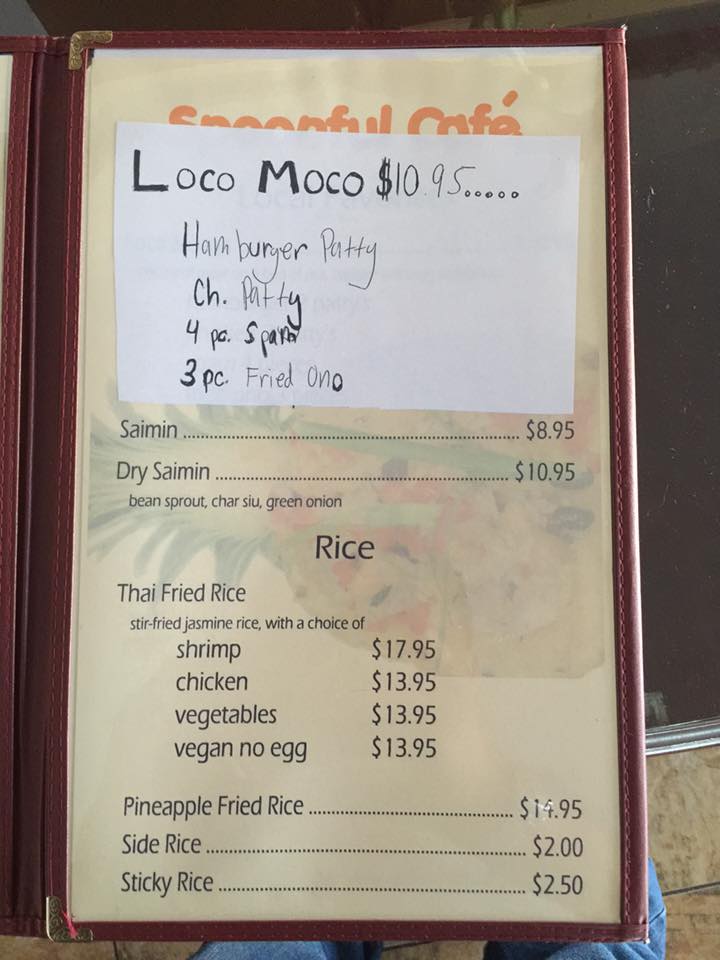 Spoonful Café
Loco Moco $10.95.....
Hamburger Patty
Ch. Patty
4 pc. Spam
3 pc. Fried Ono
Saimin ........................................ $8.95
Dry Saimin ........................................ $10.95
bean sprout, char siu, green onion
Rice
Thai Fried Rice
stir-fried jasmine rice, with a choice of
shrimp $17.95
chicken $13.95
vegetables $13.95
vegan no egg $13.95
Pineapple Fried Rice ........................................ $14.95
Side Rice ........................................ $2.00
Sticky Rice ........................................ $2.50